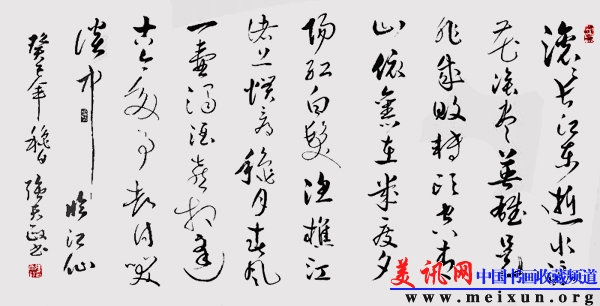 滚滚长江东逝水浪
花淘尽英雄是
非成败转头空青
山依旧在几度夕
阳红白发渔樵江
渚上惯看秋月春风
一壶浊酒喜相逢
古今多少事都付笑
谈中 临江仙
癸巳年 书
美讯网 中国书画收藏频道
www.meixun.org